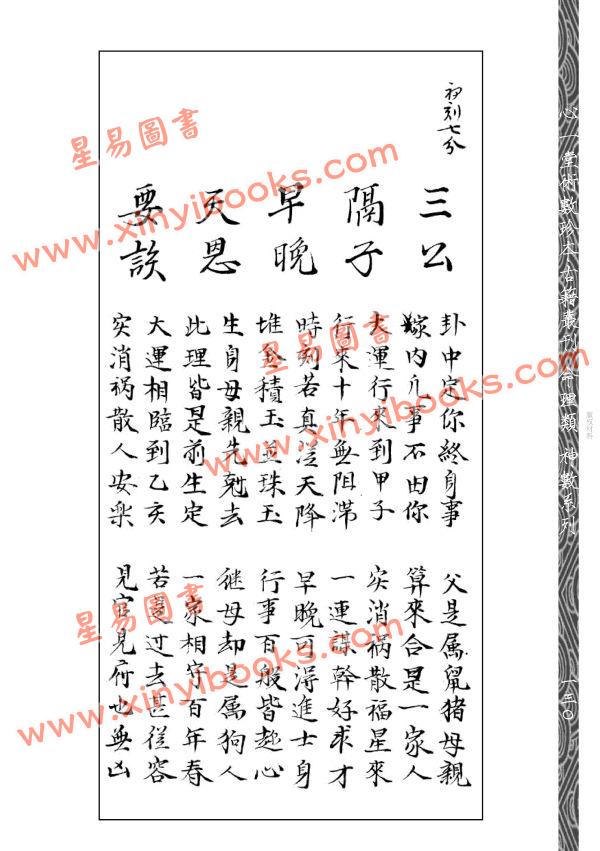 心一堂術數珍本古籍叢刊 神數系列
一三〇
初刻七分
三公
隔子
早晚
天恩
要
卦中定你終身事 父是属鼠猪母親
内凢事不由你 算來合是一家人
大運行來到甲子 灾消祸散福星來
行來十年無阻滞 一連謀幹好求才
時刻若真從天降 早晚可得進士身
堆金積玉並珠玉 行事百般皆趁心
生身母親先尅去 继母却是属狗人
此理皆是前生定 一家相守百年春
大運相臨到乙亥 若 过去甚從容
灾消祸散人安樂 見官見府也無凶
星易圖書
www.xinyibooks.com
星易圖書
www.xinyibooks.com
星易圖書
www.xinyibooks.com